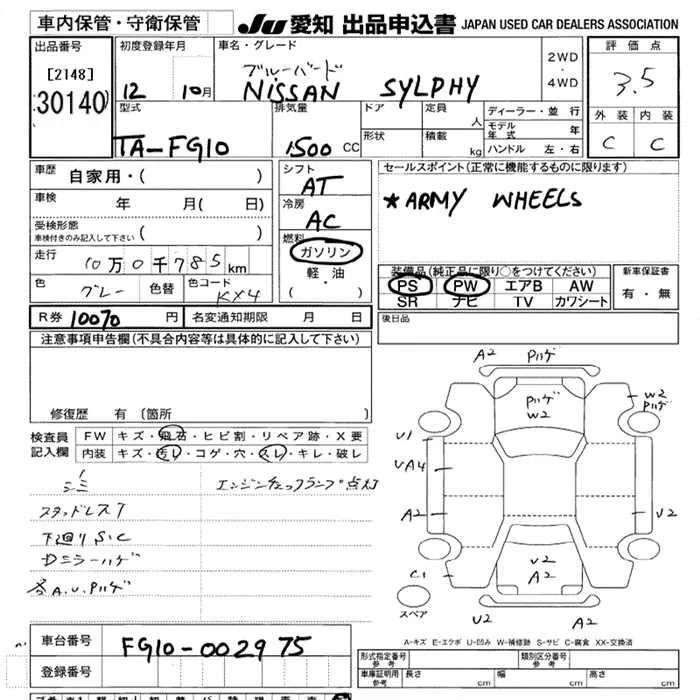 車内保管・守衛保管 JU 愛知 出品申込書 JAPAN USED CAR DEALERS ASSOCIATION
出品番号 初度登録年月 車名・グレード 評価点
[2148] 12 10月 ブルーバード 2WD ・ 4WD 3.5
30140 NISSAN SYLPHY
外装 内装
C C
型式 排気量 ドア 定員 人 ディーラー・並行
モデル年式 年
TA-FG10 1500 CC 形状 積載 kg ハンドル 左・右
車歴 自家用・( ) シフト AT セールスポイント(正常に機能するものに限ります)
車検 年 月( 日) 冷房 AC ★ARMY WHEELS
受検形態
車検付きのみ記入して下さい ( )
燃料 ガソリン 軽油 ( ・ )
走行 10万0千785km
装備品(純正品に限り○をつけてください) 新車保証書
色 グレー 色替 色コード KX4
PS PW エアB AW 有・無
SR ナビ TV カワシート
R券 10070 円 名変通知期限 月 日 後日品
注意事項申告欄(不具合内容等は具体的に記入して下さい)
修復歴 有 (箇所 )
検査員記入欄 FW キズ・飛石・ヒビ割・リペア跡・X要
内装 キズ・汚レ・コゲ・穴・スレ・キレ・破レ
エンジンチェックランプ点灯
スタッドレス7
下廻りS.C
Dミラーハゲ
各A.U.Pハゲ
A2 Pハゲ
Pハゲ W2
W2 Pハゲ
U1
UA4
A2
U2
U2 A2
C1
スペア
U2 A2
A-キズ E-エクボ U-凹み W-補修跡 S-サビ C-腐食 XX-交換済
車台番号 FG10-002975
登録番号
形式指定番号 参考 類別区分番号 参考
車庫証明用 参考 長さ cm 幅 cm 高さ cm